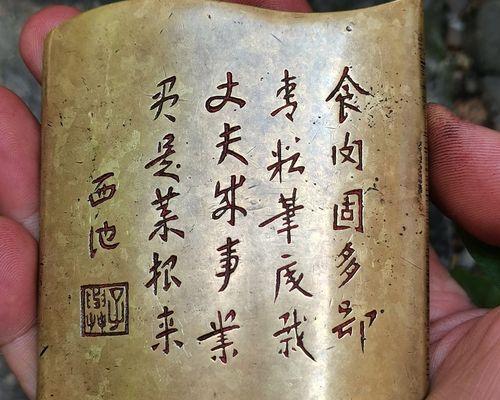 食肉固多鄙
青松筆底栽
丈夫成事業
只是菜根来
西池